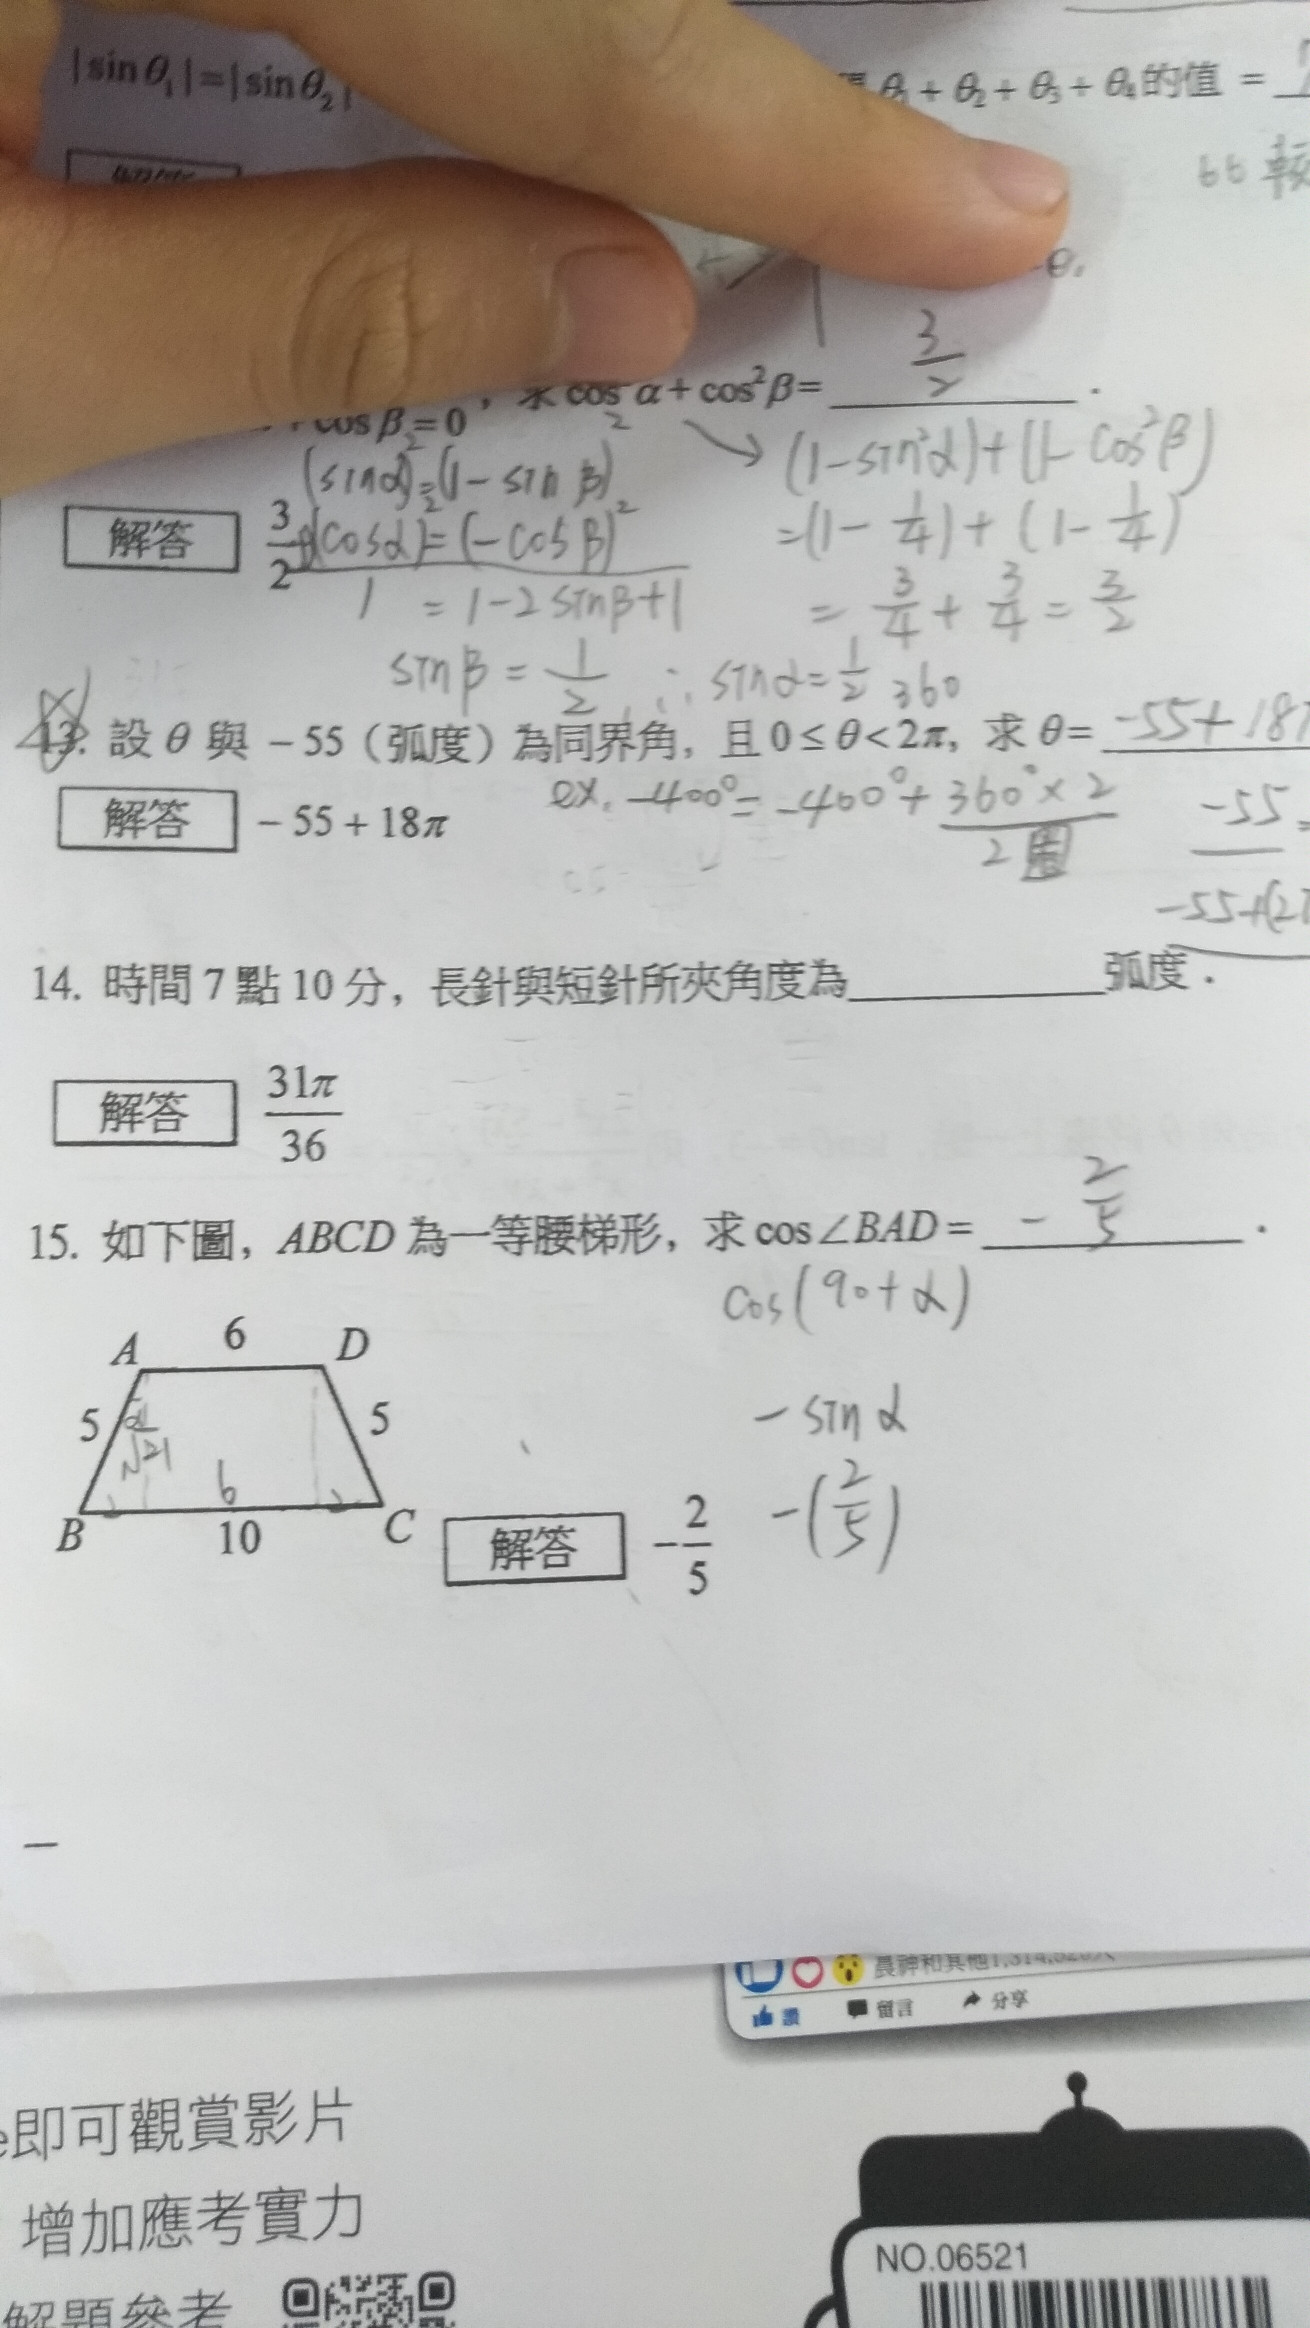 |sin θ₁|=|sin θ₂|
θ₁ + θ₂ + θ₃ + θ₄的值 =
-θ₁
求 cos²α + cos²β = 3/2 .
cos β = 0
(sinα)² = (1 - sin β)²
→ (1-sin²α)+(1-cos²β)
解答 3/2
+(cosα)² = (-cosβ)²
=(1-1/4)+(1-1/4)
1 = 1-2sinβ+1
= 3/4 + 3/4 = 3/2
sinβ = 1/2, ∴ sinα = 1/2
360
13. 設 θ 與 -55（弧度）為同界角，且 0≤θ<2π，求 θ= -55+18π
ex. -400° = -400° + 360°×2
2圈
-55=
解答 -55+18π
-55+(2π
14. 時間 7 點 10 分，長針與短針所夾角度為 弧度．
解答 31π/36
15. 如下圖，ABCD 為一等腰梯形，求 cos∠BAD = -2/5 .
cos(90+α)
A 6 D
-sinα
5 α 5
√21
-(2/5)
2 6 2
B 10 C
解答 -2/5
讚 留言 分享
e即可觀賞影片
增加應考實力
解題參考
NO.06521